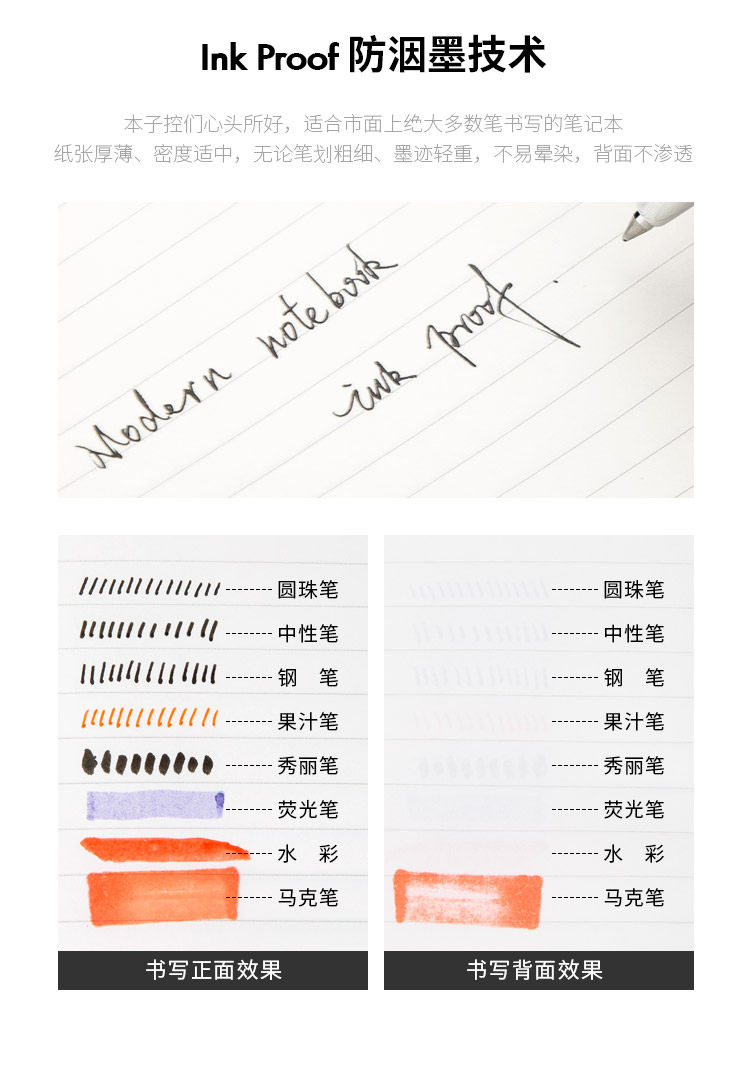 Ink Proof 防洇墨技术
本子控们心头所好，适合市面上绝大多数笔书写的笔记本
纸张厚薄、密度适中，无论笔划粗细、墨迹轻重，不易晕染，背面不渗透
Modern notebook
ink proof.
圆珠笔
中性笔
钢 笔
果汁笔
秀丽笔
荧光笔
水 彩
马克笔
书写正面效果
圆珠笔
中性笔
钢 笔
果汁笔
秀丽笔
荧光笔
水 彩
马克笔
书写背面效果